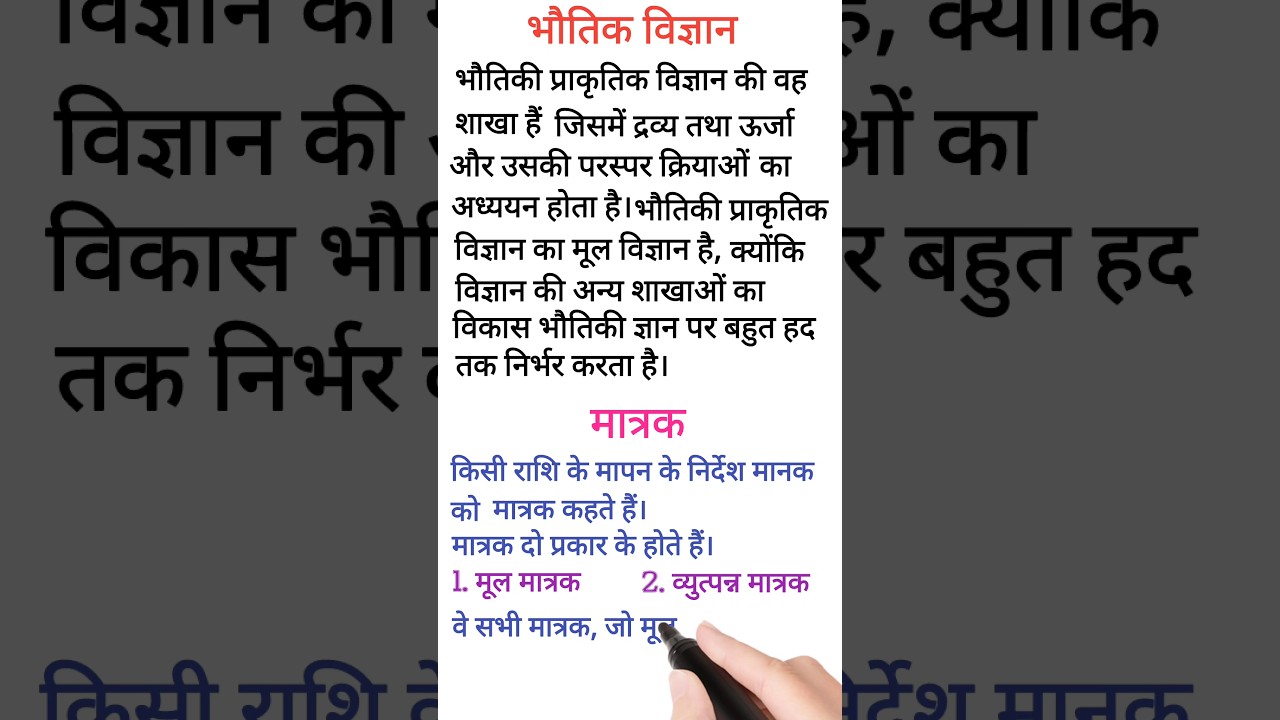 भौतिक विज्ञान
भौतिकी प्राकृतिक विज्ञान की वह
शाखा हैं जिसमें द्रव्य तथा ऊर्जा
और उसकी परस्पर क्रियाओं का
अध्ययन होता है।भौतिकी प्राकृतिक
विज्ञान का मूल विज्ञान है, क्योंकि
विज्ञान की अन्य शाखाओं का
विकास भौतिकी ज्ञान पर बहुत हद
तक निर्भर करता है।
मात्रक
किसी राशि के मापन के निर्देश मानक
को मात्रक कहते हैं।
मात्रक दो प्रकार के होते हैं।
1. मूल मात्रक 2. व्युत्पन्न मात्रक
वे सभी मात्रक, जो मूल